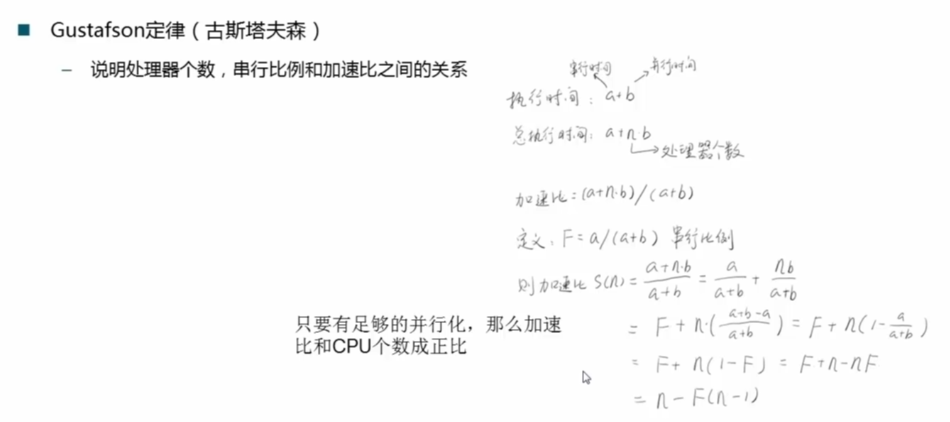 Gustafson定律（古斯塔夫森）
– 说明处理器个数，串行比例和加速比之间的关系
串行时间 并行时间
执行时间：a+b
总执行时间：a+nb
→处理器个数
加速比=(a+n·b)/(a+b)
定义：F=a/(a+b) 串行比例
则加速比 S(n)=\frac{a+n·b}{a+b}=\frac{a}{a+b}+\frac{nb}{a+b}
= F+n·(\frac{a+b-a}{a+b})=F+n(1-\frac{a}{a+b})
= F+n(1-F)=F+n-nF
= n-F(n-1)
只要有足够的并行化，那么加速
比和CPU个数成正比